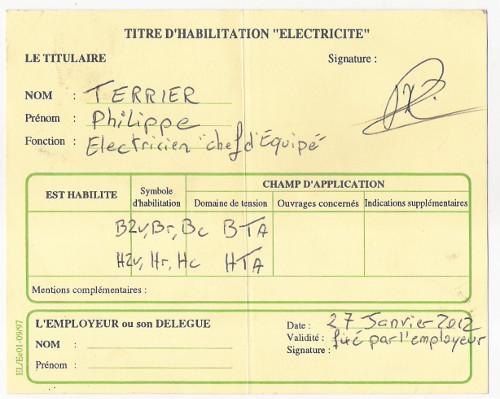 TITRE D'HABILITATION "ELECTRICITE"
LE TITULAIRE Signature :
NOM : TERRIER
Prénom : Philippe
Fonction : Electricien "chef d'Equipé"
EST HABILITE Symbole d'habilitation CHAMP D'APPLICATION
Domaine de tension Ouvrages concernés Indications supplémentaires
B2v, Br, Bc BTA
H2v, Hr, Hc HTA
Mentions complémentaires :
L'EMPLOYEUR ou son DELEGUE Date : 27 Janvier 2012
NOM : Validité : fixé par l'employeur
Prénom : Signature :
EL/Ee01-09/97